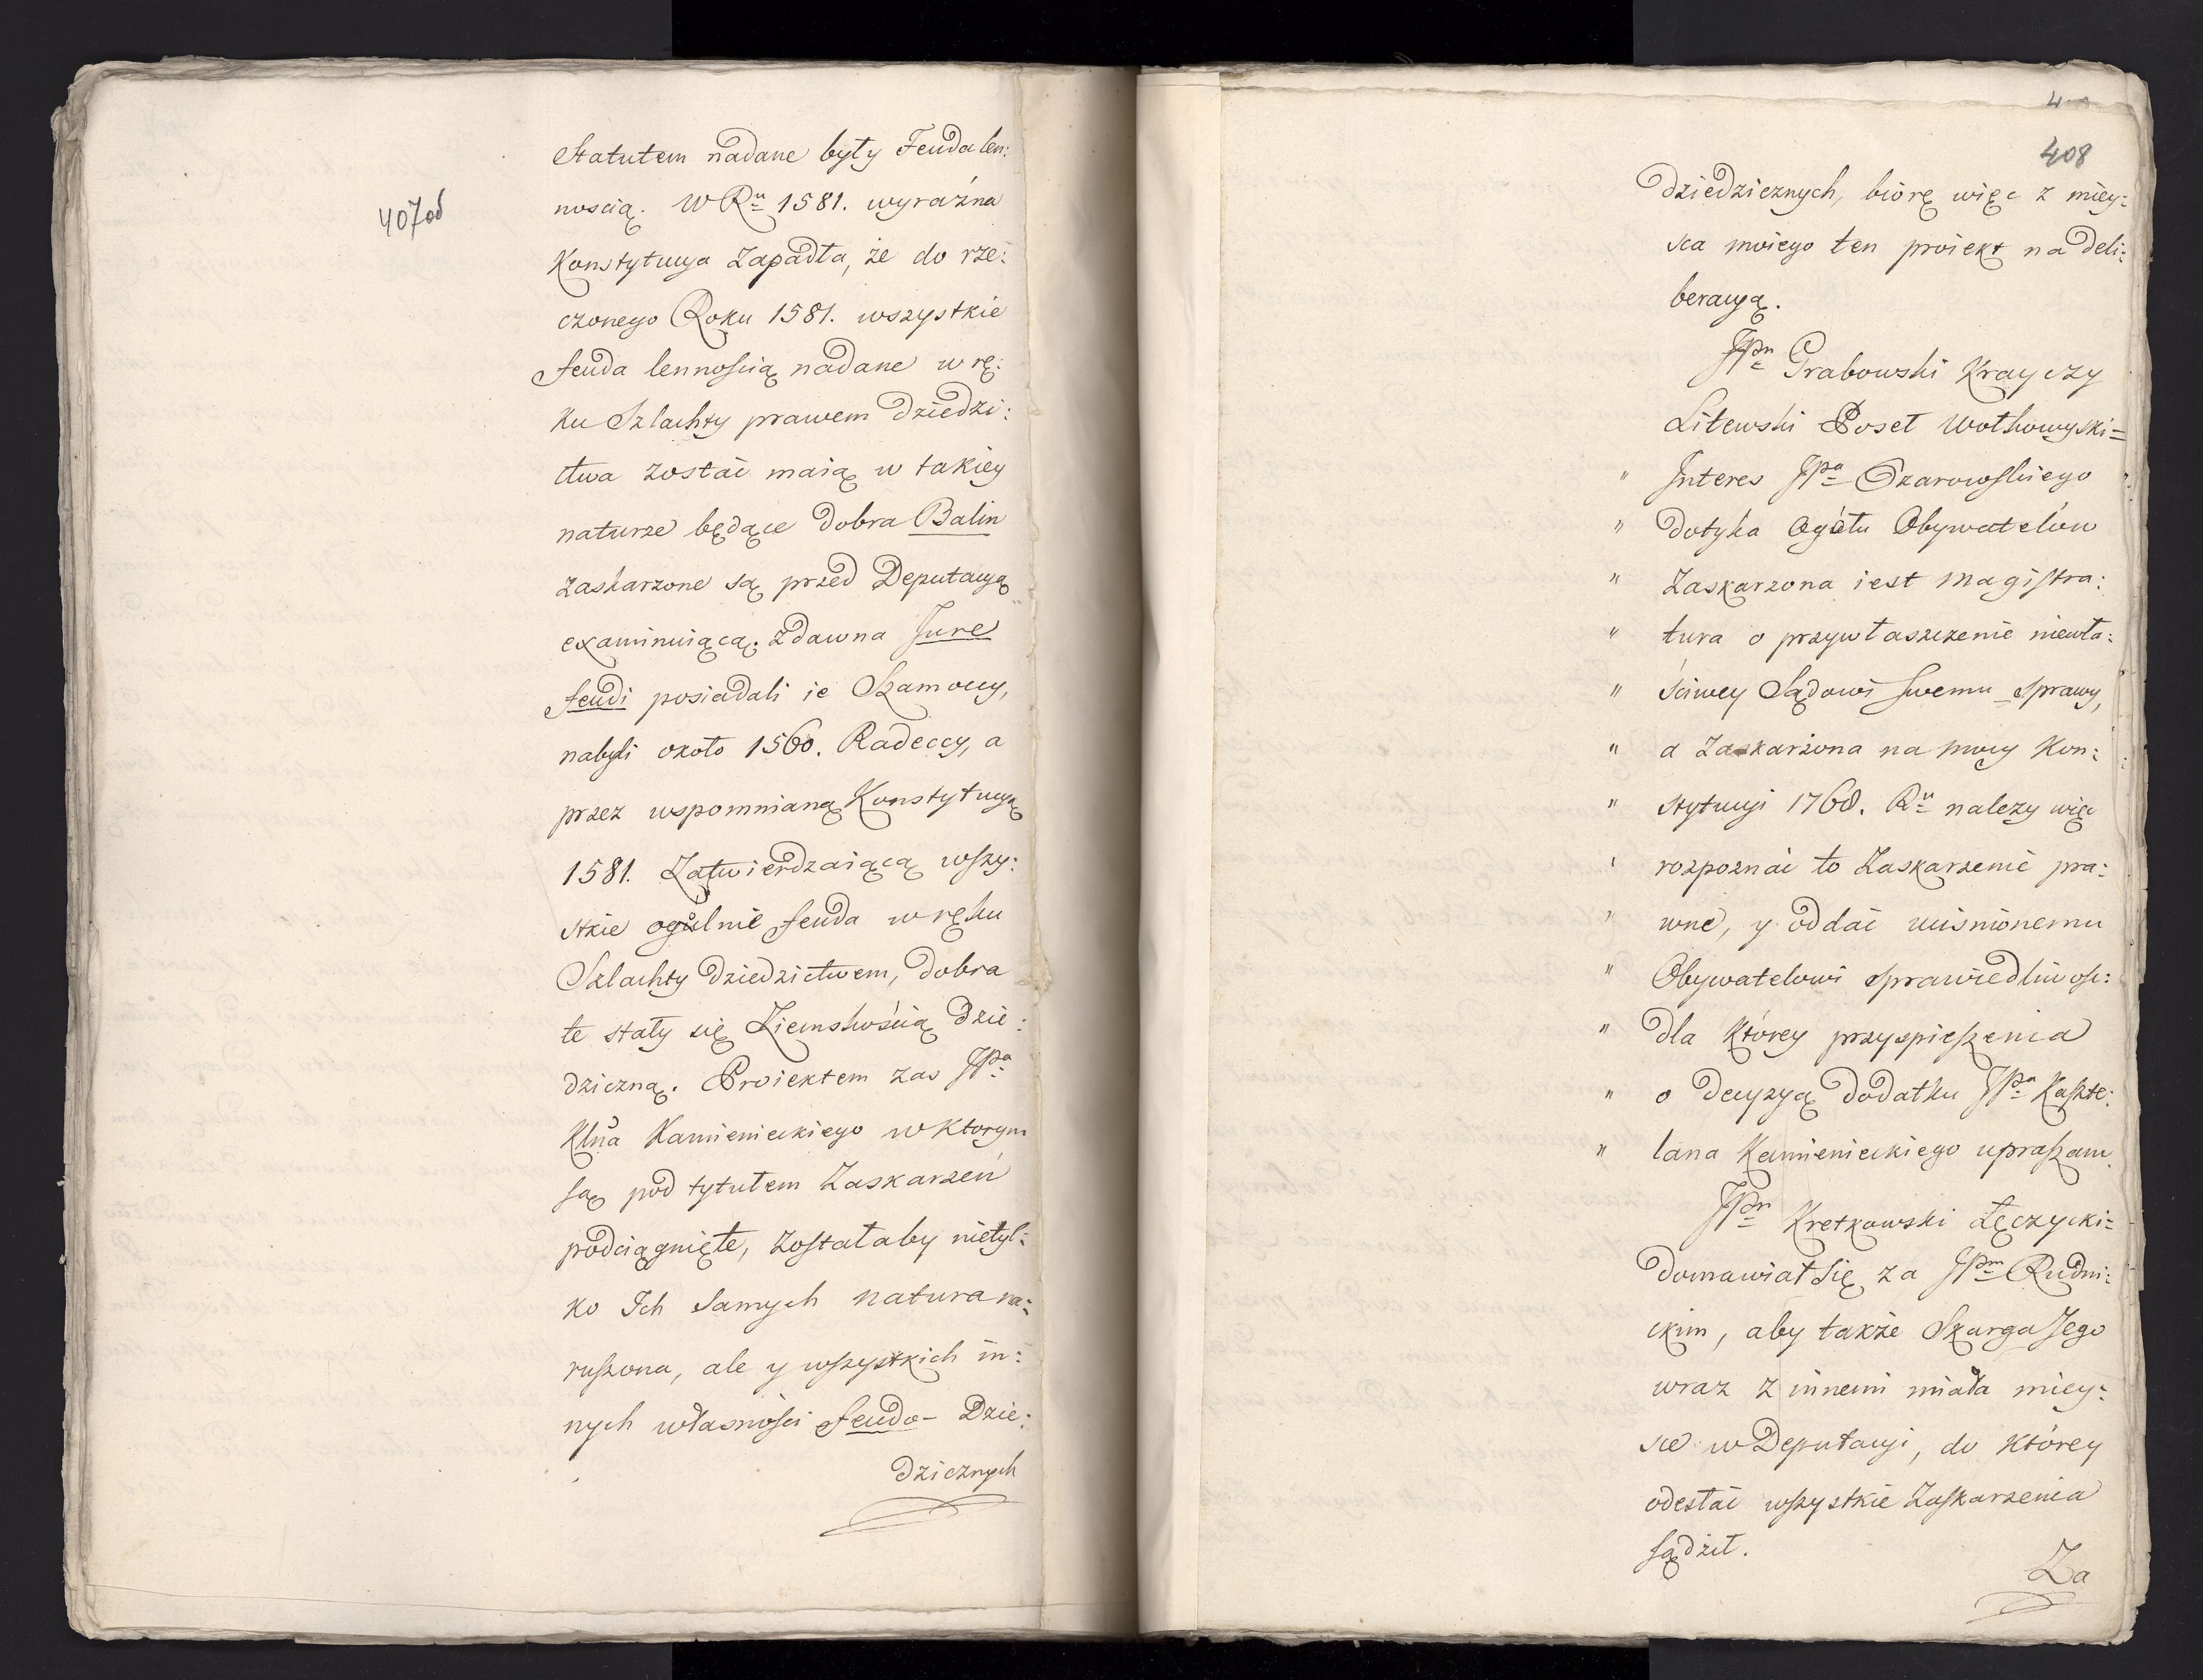 407od
Statutem nadane były Feuda len:
noscią. W Ru 1581. wyraźna
Konstytucya Zapadła, że do rze:
czonego Roku 1581. wszystkie
feuda lennością nadane w rę:
ku Szlachty prawem Dziedzi:
ctwa zostać maią w takiey
naturze będące Dobra Balin
zaskarzone są przed Deputacyą
examinuiącą. Zdawna Jure
feudi posiadali ie Szamoccy,
nabyli około 1560. Radeccy, a
przez wspomnianą Konstytucyą
1581. Zatwierdzaiącą wszy:
stkie ogulnie feuda w ręku
Szlachty Dziedzictwem, Dobra
te stały się Ziemskością Dzie:
dziczną. Proiektem zas JPa
Klna Kamienieckiego w Ktorym
są pod tytułem Zaskarzeń
podciągnięte, Zostałaby nietyl:
ko Ich Samych natura na:
ruszona, ale y wszystkich in:
nych własności feudo- Dzie:
dzicznych
408
Dziedzicznych, biorę więc z miey:
sca moiego ten proiekt na Deli:
beracyą.
JPn Grabowski Krayczy
Litewski Poseł Wołkowyski=
" Interes JPa Ożarowskiego
" Dotyka Ogółu Obywatelów
" Zaskarzona iest Magistra:
" tura o przywłaszczenie niewła:
" ściwey Sądowi Swemu Sprawy,
" a Zaskarżona na mocy Kon:
" stytucyi 1768. Ru należy więc
" rozpoznać to Zaskarzenie pra:
" wne, y oddać uciśnionemu
" Obywatelowi Sprawiedliwość:
" dla Którey przyspieszenia
" o Decyzyą Dodatku JPa Kaszte:
" lana Kamienieckiego upraszam.
JPn Kretkowski Łęczycki=
Domawiał Się za JPm Rudni:
ckim, aby także Skarga Jego
wraz z innemi miała miey:
sce w Deputacyi, do Którey
odesłać wszystkie Zaskarzenia
sądził.
Za